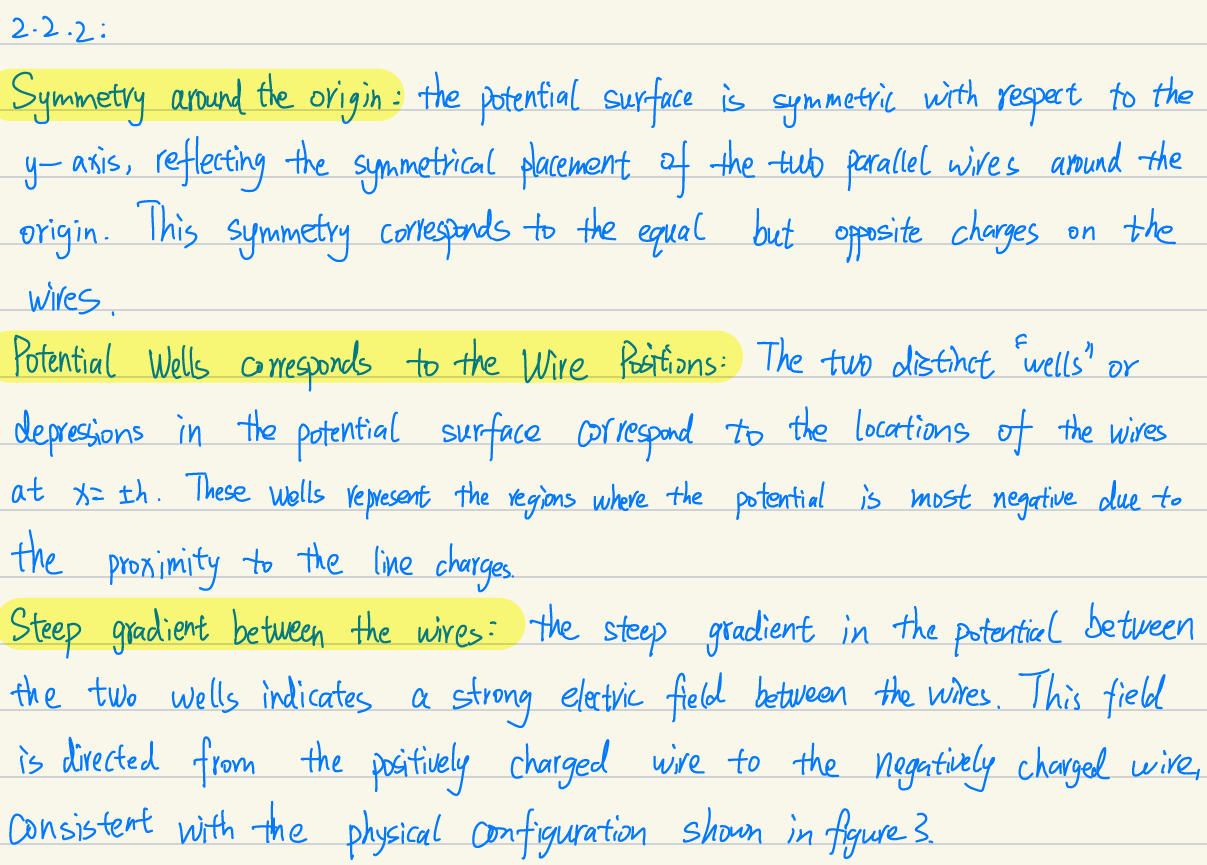 2.2.2:
Symmetry around the origin: the potential surface is symmetric with respect to the
y-axis, reflecting the symmetrical placement of the two parallel wires around the
origin. This symmetry corresponds to the equal but opposite charges on the
wires.
Potential Wells corresponds to the Wire Positions: The two distinct "wells" or
depressions in the potential surface correspond to the locations of the wires
at x= ±h. These wells represent the regions where the potential is most negative due to
the proximity to the line charges.
Steep gradient between the wires: the steep gradient in the potential between
the two wells indicates a strong electric field between the wires. This field
is directed from the positively charged wire to the negatively charged wire,
consistent with the physical configuration shown in figure 3.